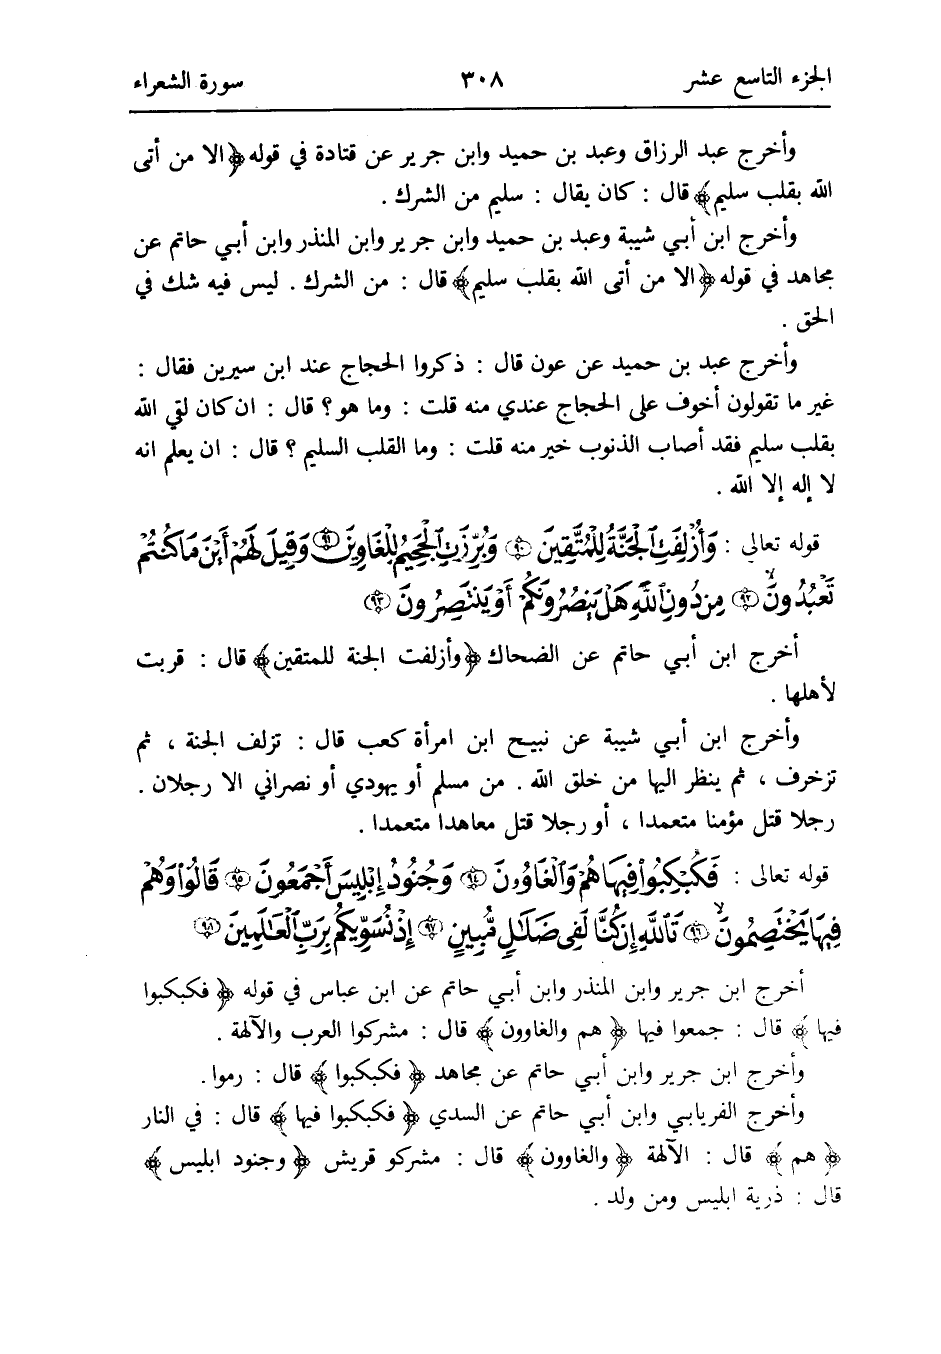 الجزء التاسع عشر ٣٠٨ سورة الشعراء
وأخرج عبد الرزاق وعبد بن حميد وابن جرير عن قتادة في قوله ﴿الا من أتى
الله بقلب سليم﴾ قال : كان يقال : سليم من الشرك .
وأخرج ابن أبي شيبة وعبد بن حميد وابن جرير وابن المنذر وابن أبي حاتم عن
مجاهد في قوله ﴿الا من أتى الله بقلب سليم﴾ قال : من الشرك . ليس فيه شك في
الحق .
وأخرج عبد بن حميد عن عون قال : ذكروا الحجاج عند ابن سيرين فقال :
غير ما تقولون أخوف على الحجاج عندي منه قلت : وما هو ؟ قال : ان كان لقي الله
بقلب سليم فقد أصاب الذنوب خير منه قلت : وما القلب السليم ؟ قال : ان يعلم انه
لا إله إلا الله .
قوله تعالى : وَأُزْلِفَتِ ٱلْجَنَّةُ لِلْمُتَّقِينَ ۝٩٠ وَبُرِّزَتِ ٱلْجَحِيمُ لِلْغَاوِينَ ۝٩١ وَقِيلَ لَهُمْ أَيْنَ مَا كُنتُمْ
تَعْبُدُونَ ۝٩٢ مِن دُونِ ٱللَّهِ هَلْ يَنصُرُونَكُمْ أَوْ يَنتَصِرُونَ ۝٩٣
أخرج ابن أبي حاتم عن الضحاك ﴿وأزلفت الجنة للمتقين﴾ قال : قربت
لأهلها .
وأخرج ابن أبي شيبة عن نبيح ابن امرأة كعب قال : تزلف الجنة ، ثم
تزخرف ، ثم ينظر اليها من خلق الله . من مسلم أو يهودي أو نصراني الا رجلان .
رجلا قتل مؤمنا متعمدا ، أو رجلا قتل معاهدا متعمدا .
قوله تعالى : فَكُبْكِبُوا۟ فِيهَا هُمْ وَٱلْغَاوُۥنَ ۝٩٤ وَجُنُودُ إِبْلِيسَ أَجْمَعُونَ ۝٩٥ قَالُوا۟ وَهُمْ
فِيهَا يَخْتَصِمُونَ ۝٩٦ تَٱللَّهِ إِن كُنَّا لَفِى ضَلَـٰلٍ مُّبِينٍ ۝٩٧ إِذْ نُسَوِّيكُم بِرَبِّ ٱلْعَـٰلَمِينَ ۝٩٨
أخرج ابن جرير وابن المنذر وابن أبي حاتم عن ابن عباس في قوله ﴿ فكبكبوا
فيها ﴾ قال : جمعوا فيها ﴿ هم والغاوون ﴾ قال : مشركوا العرب والآلهة .
وأخرج ابن جرير وابن أبي حاتم عن مجاهد ﴿ فكبكبوا ﴾ قال : رموا .
وأخرج الفريابي وابن أبي حاتم عن السدي ﴿ فكبكبوا فيها ﴾ قال : في النار
﴿ هم ﴾ قال : الآلهة ﴿ والغاوون ﴾ قال : مشركو قريش ﴿ وجنود ابليس ﴾
قال : ذرية ابليس ومن ولد .